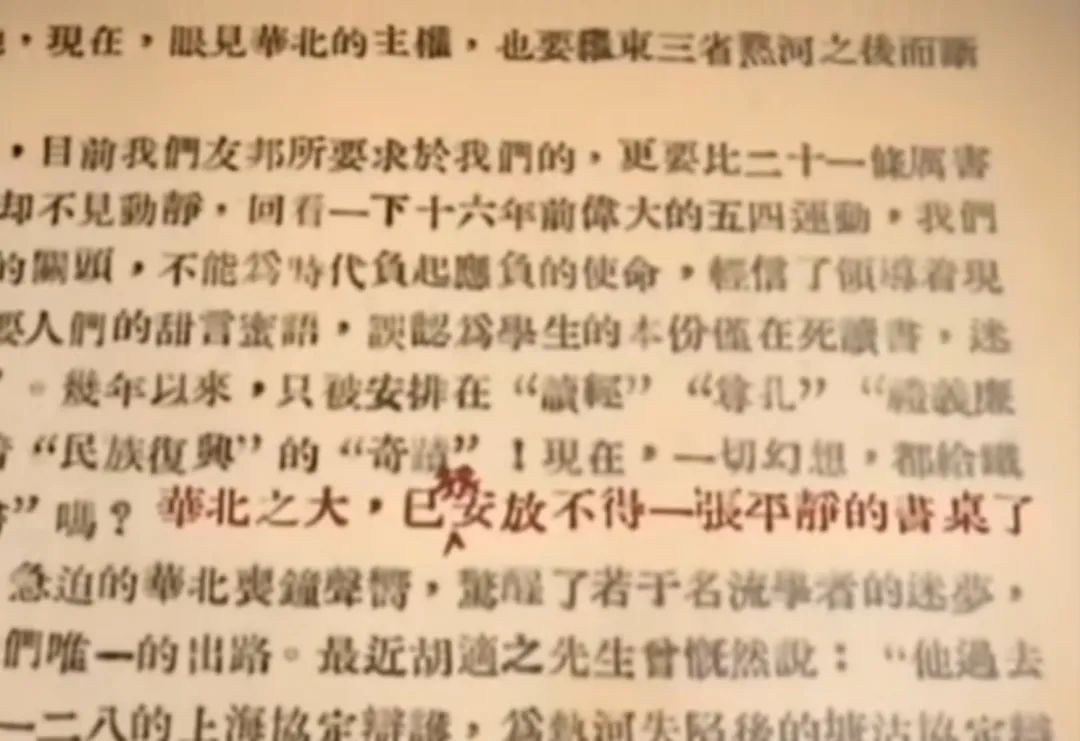 ，現在，眼見華北的主權，也要繼東三省熱河之後而斷
，目前我們友邦所要求於我們的，更要比二十一條厲害
却不見動靜，回看一下十六年前偉大的五四運動，我們
的關頭，不能爲時代負起應負的使命，輕信了領導着現
要人們的甜言蜜語，誤認爲學生的本份僅在死讀書，迷
。幾年以來，只被安排在“讀經”“尊孔”“禮義廉
“民族復興”的“奇蹟”！現在，一切幻想，都給鐵
”嗎？華北之大，已安放不得一張平靜的書桌了
急迫的華北喪鐘聲響，驚醒了若干名流學者的迷夢，
們唯一的出路。最近胡適之先生曾慨然說：“他過去
一二八的上海協定辯護，爲熱河失陷後的塘沽協定辯